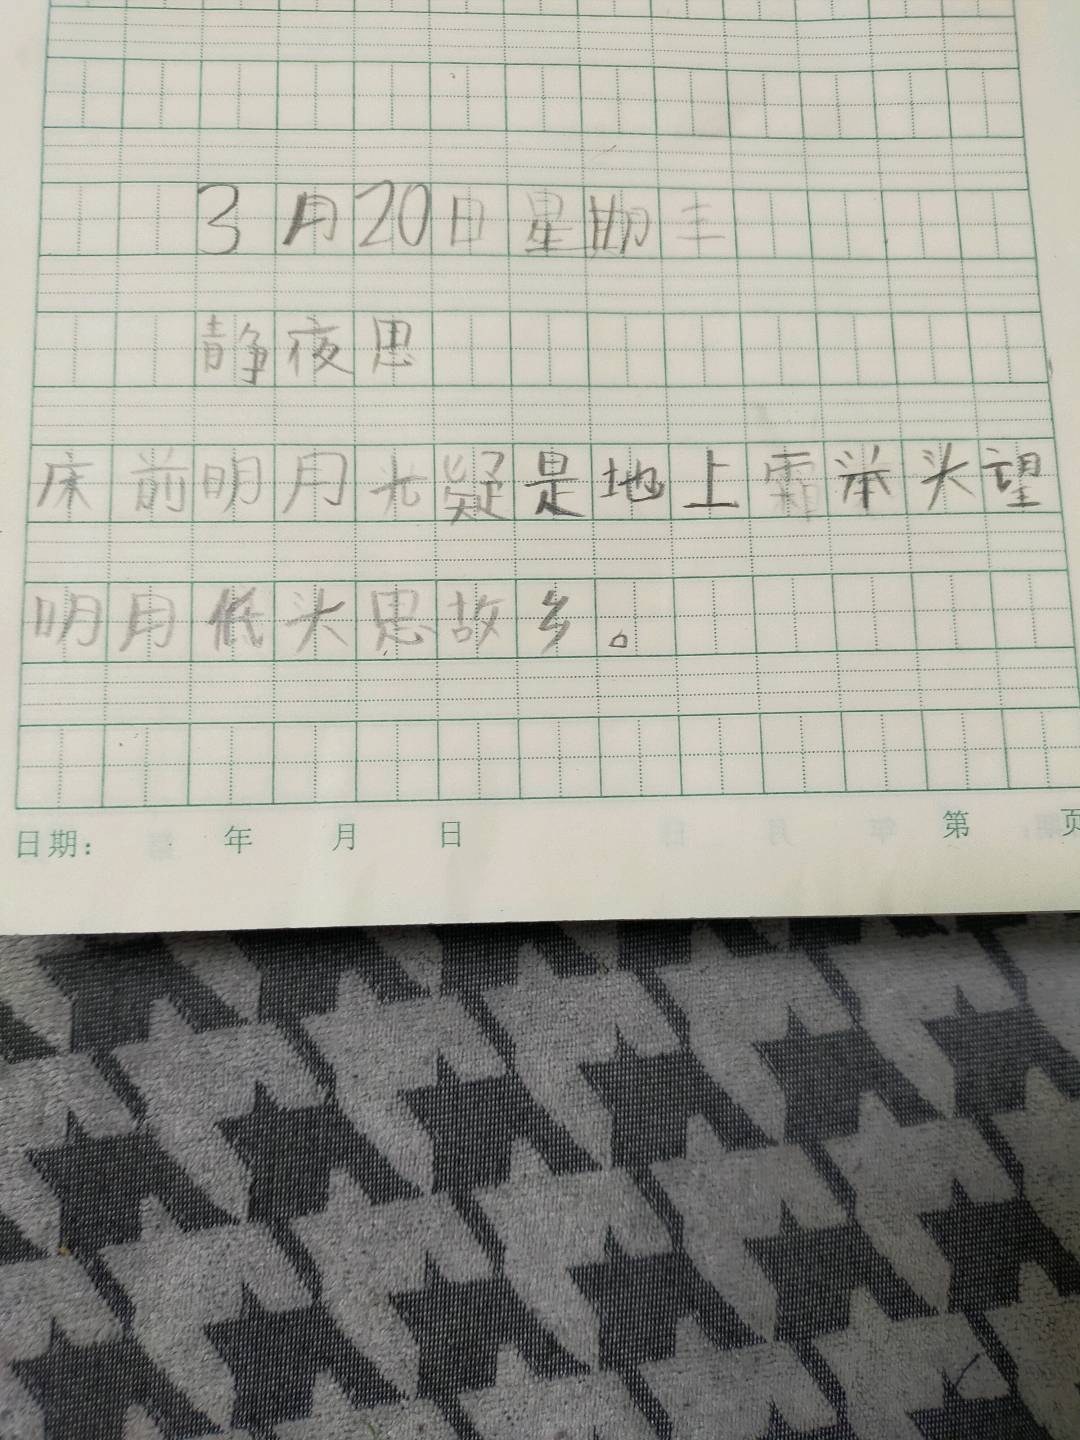 3月20日星期三
静夜思
床前明月光疑是地上霜举头望
明月低头思故乡。
日期： 年 月 日 第 页